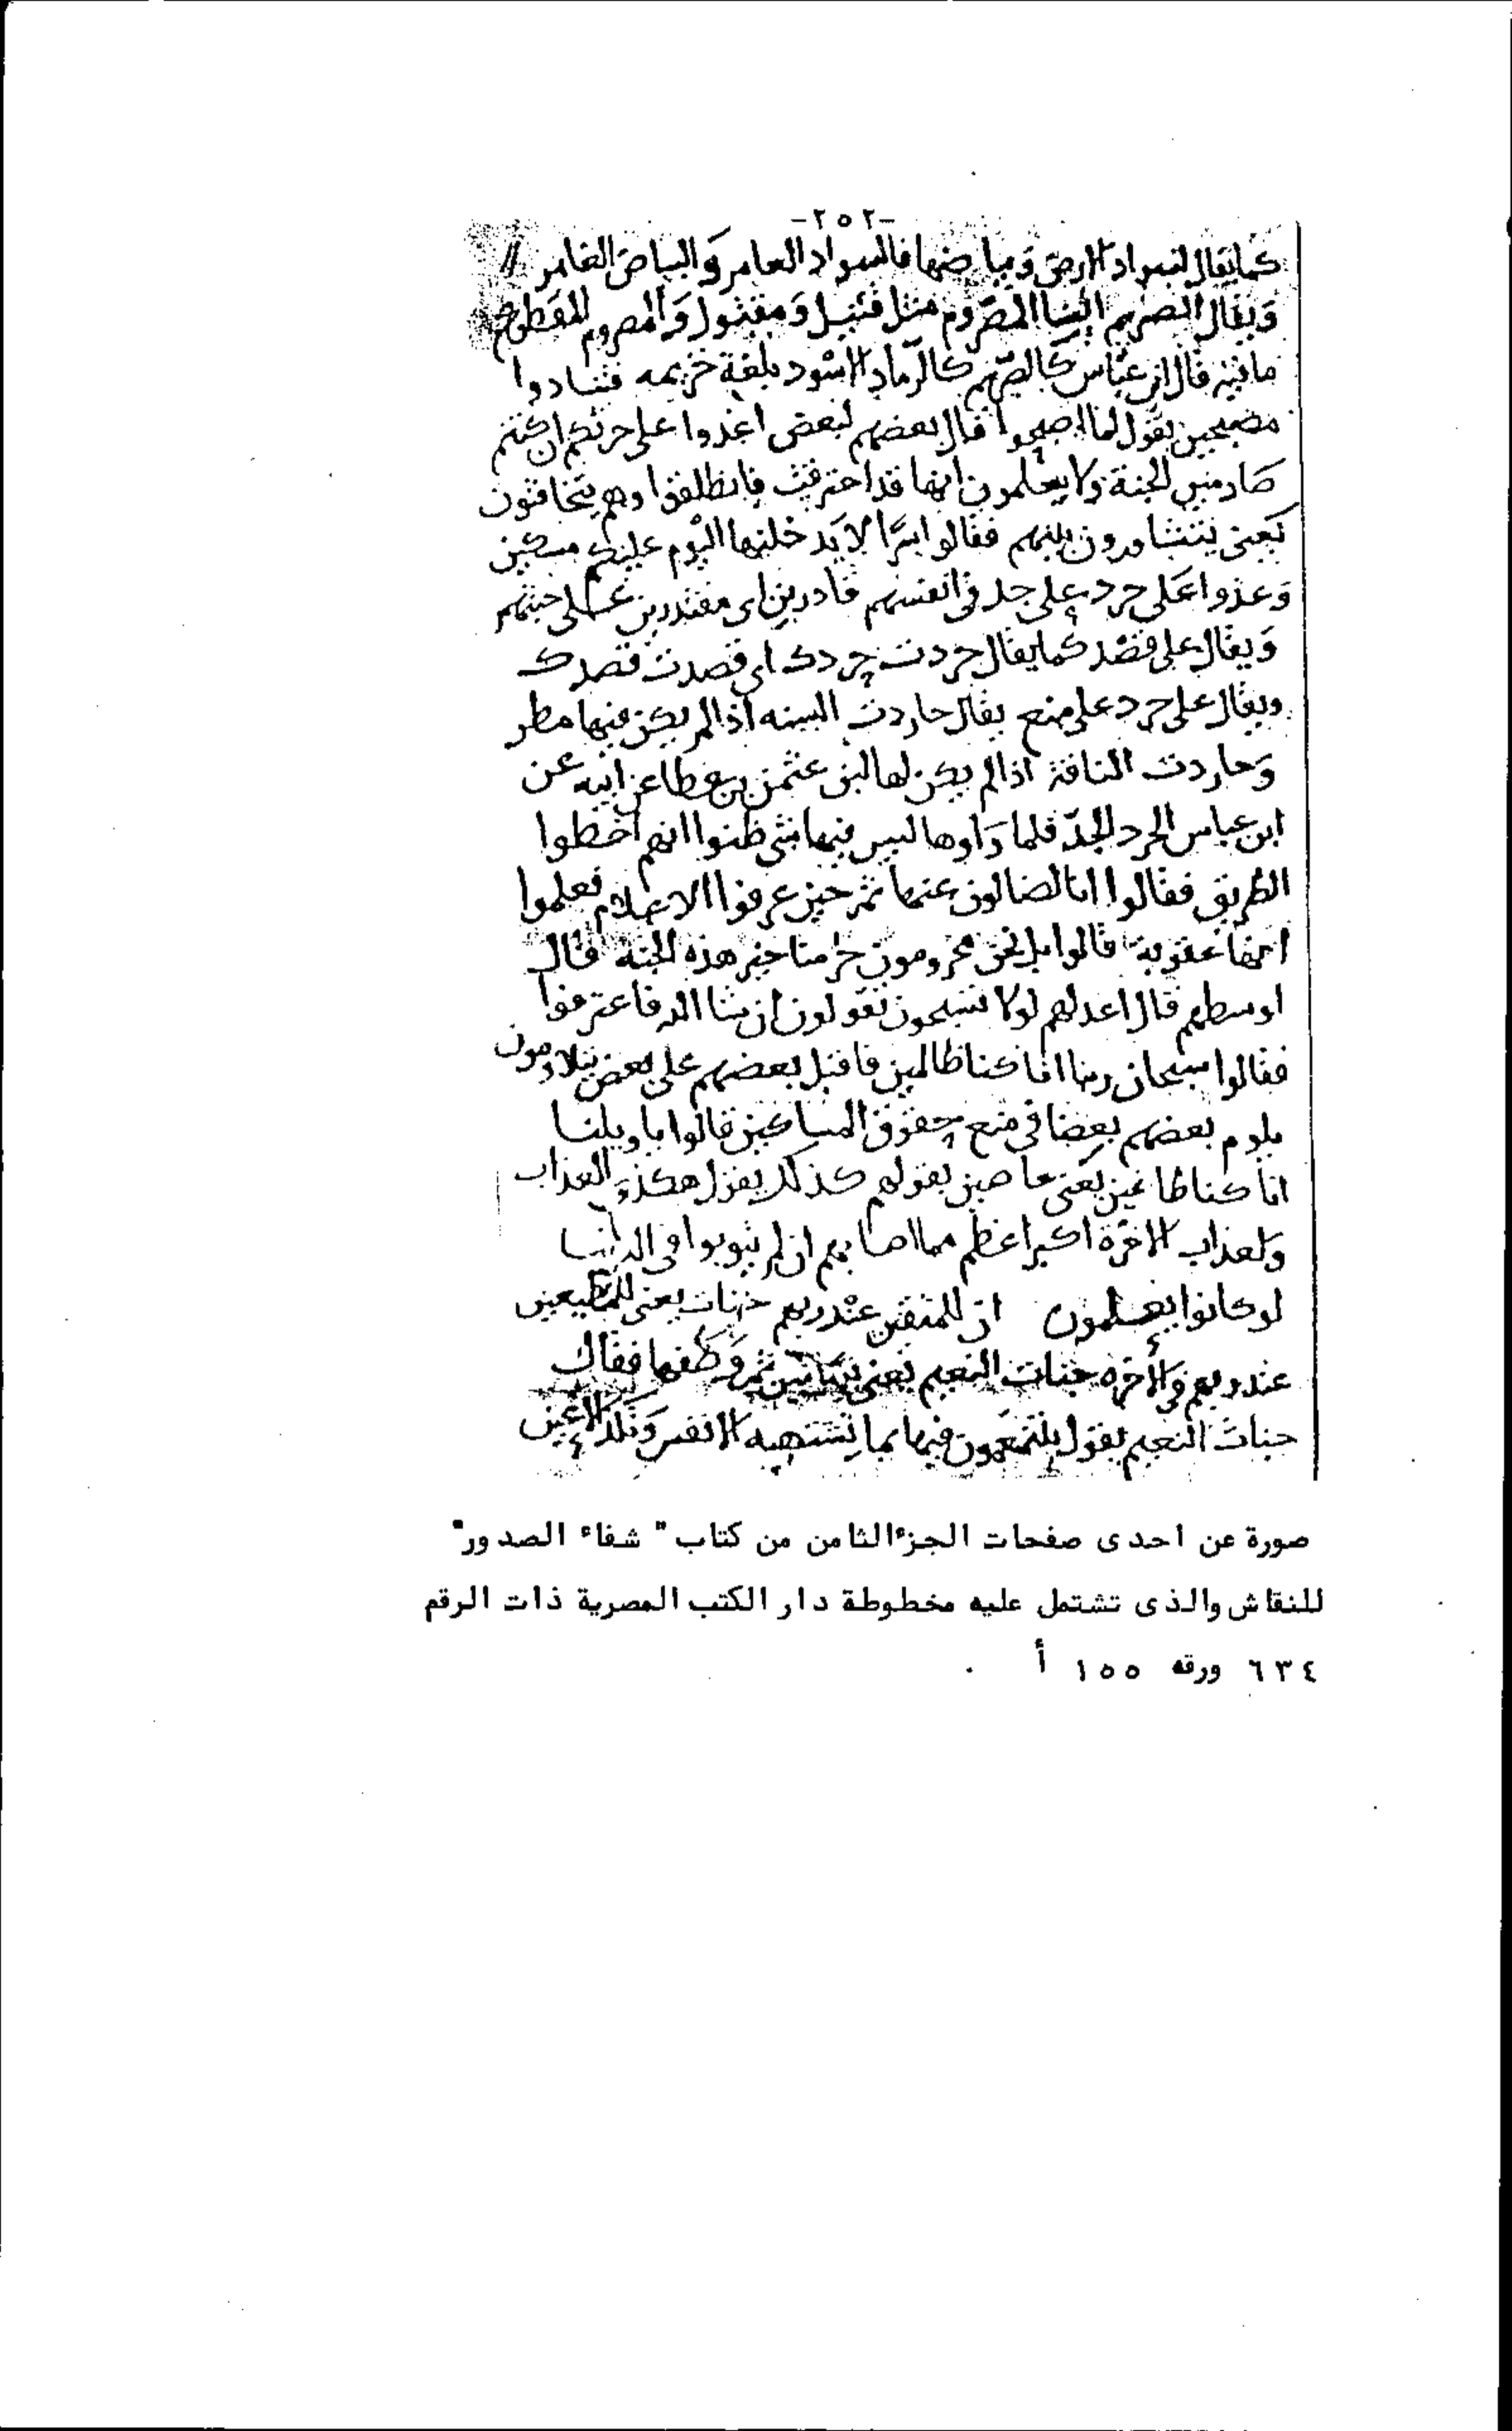 -٢٥٢-
كما يقال لسواد الارض وبياضها فالسواد العامر والبياض الغامر
ويقال الصريم ايضا المصروم مثل قتيل ومقتول والمصروم المقطوع
ما فيه قال ابن عباس كالصريم كالرماد الاسود بلغة خزيمه فتنادوا
مصبحين يقول لما اصبحوا قال بعضهم لبعض اغدوا على حرثكم ان كنتم
صارمين الجنة ولا يعلمون انها قد احترقت فانطلقوا وهم يتخافتون
يعنى يتشاورون بينهم فقالوا سرا لا يدخلنها اليوم عليكم مسكين
وغدوا على حرد على جد فى انفسهم قادرين اى مقتدرين على جنتهم
ويقال على قصد كما يقال حردت حردك اى قصدت قصدك
ويقال على حرد على منع يقال حاردت السنه اذا لم يكن فيها مطر
وحاردت الناقة اذا لم يكن لها لبن عثمن بن عطا عن ابيه عن
ابن عباس الحرد الجد فلما راوها ليس فيها شى ظنوا انهم اخطوا
الطريق فقالوا انا لضالون عنها ثم حين عرفوا الاعلام فعلموا
انها عقوبة قالوا بل نحن محرومون حرمنا خير هذه الجنة قال
اوسطهم قال اعدلهم لولا تسبحون تقولون ان شا الله فاعترفوا
فقالوا سبحان ربنا انا كنا ظالمين فاقبل بعضهم على بعض يتلاومون
يلوم بعضهم بعضا فى منع حقوق المساكين قالوا يا ويلنا
انا كنا طاغين يعنى عاصين بقولهم كذلك يقول هكذى العذاب
ولعذاب الاخرة اكبر اعظم مما اصابهم ان لم يتوبوا فى الدنيا
لو كانوا يعلمون ان للمتقين عند ربهم جنات يعنى للمطيعين
عند ربهم فى الاخره جنات النعيم يعنى بساتين ثم وصفها فقال
جنات النعيم يقول يتنعمون فيها بما تشتهيه الانفس وتلذ الاعين
صورة عن احدى صفحات الجزء الثامن من كتاب " شفاء الصدور"
للنقاش والذى تشتمل عليه مخطوطة دار الكتب المصرية ذات الرقم
٦٣٤ ورقه ١٥٥ أ .